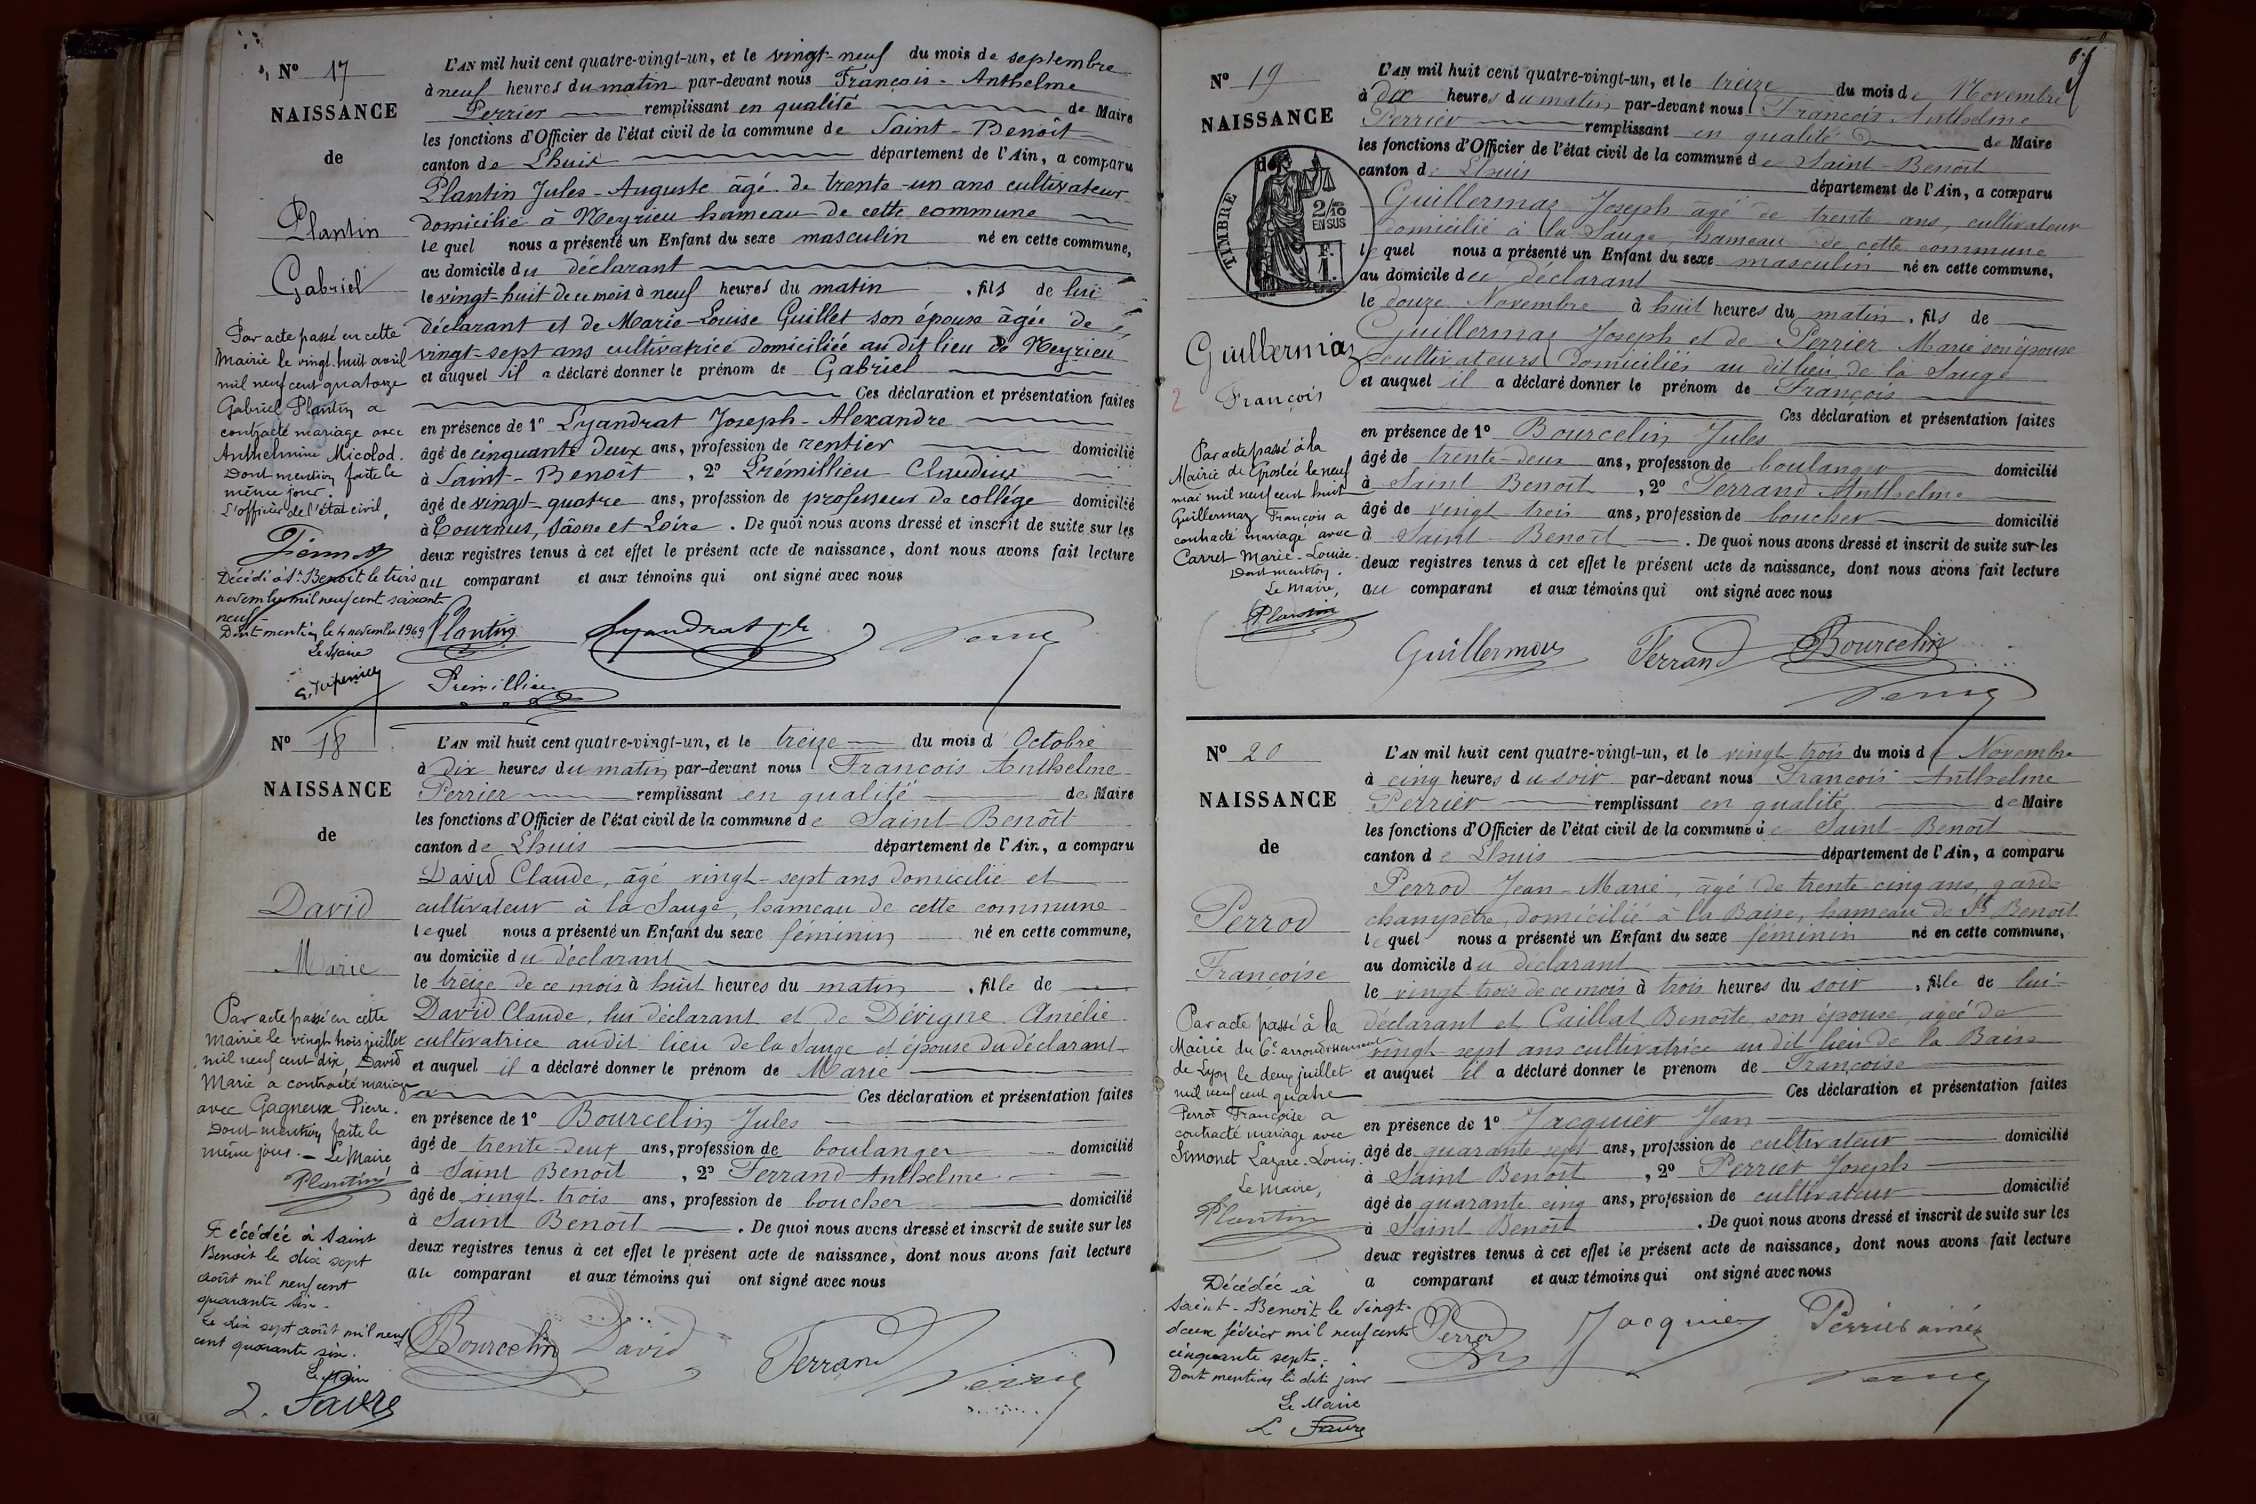 Nº 17
NAISSANCE
de
Plantin
Gabriel
Par acte passé en cette
Mairie le vingt-huit avril
mil neuf cent quatorze
Gabriel Plantin a
contracté mariage avec
Anthelmine Micolod.
Dont mention faite le
même jour.
L'officier de l'état civil,
Décédé à St Benoît le trois
novembre mil neuf cent soixante
neuf
Dont mention le 4 novembre 1969
Le Maire
L'AN mil huit cent quatre-vingt-un, et le vingt-neuf du mois de septembre
à neuf heures du matin par-devant nous François-Anthelme
Perrier remplissant en qualité de Maire
les fonctions d'Officier de l'état civil de la commune de Saint-Benoît
canton de Lhuis département de l'Ain, a comparu
Plantin Jules-Auguste âgé de trente-un ans cultivateur
domicilié à Meyrieu hameau de cette commune
lequel nous a présenté un Enfant du sexe masculin né en cette commune,
au domicile du déclarant
le vingt-huit de ce mois à neuf heures du matin, fils de lui
déclarant et de Marie-Louise Guillet son épouse âgée de
vingt-sept ans cultivatrice domiciliée au dit lieu de Meyrieu
et auquel il a déclaré donner le prénom de Gabriel
Ces déclaration et présentation faites
en présence de 1º Lyandrat Joseph-Alexandre
âgé de cinquante deux ans, profession de rentier domicilié
à Saint-Benoît, 2º Prémillieu Claudius
âgé de vingt-quatre ans, profession de professeur de collège domicilié
à Tournus, Saône et Loire. De quoi nous avons dressé et inscrit de suite sur les
deux registres tenus à cet effet le présent acte de naissance, dont nous avons fait lecture
au comparant et aux témoins qui ont signé avec nous
Plantin Lyandrat
Prémillieu
Nº 18
NAISSANCE
de
David
Marie
Par acte passé en cette
Mairie le vingt trois juillet
mil neuf cent dix, David
Marie a contracté mariage
avec Gagneux Pierre.
Dont mention faite le
même jour. – Le Maire
Plantin
Décédée à Saint
Benoît le dix sept
août mil neuf cent
quarante six.
Le dix sept août mil neuf
cent quarante six.
Le Maire
L. Favre
L'AN mil huit cent quatre-vingt-un, et le treize du mois d'Octobre
à dix heures du matin par-devant nous François Anthelme
Perrier remplissant en qualité de Maire
les fonctions d'Officier de l'état civil de la commune de Saint-Benoît
canton de Lhuis département de l'Ain, a comparu
David Claude, âgé vingt-sept ans domicilié et
cultivateur à la Sauge, hameau de cette commune
lequel nous a présenté un Enfant du sexe féminin né en cette commune,
au domicile du déclarant
le treize de ce mois à huit heures du matin, fille de
David Claude, lui déclarant et de Dévigne Amélie
cultivatrice audit lieu de la Sauge et épouse du déclarant
et auquel il a déclaré donner le prénom de Marie
Ces déclaration et présentation faites
en présence de 1º Bourcelin Jules
âgé de trente-deux ans, profession de boulanger domicilié
à Saint Benoît, 2º Ferrand Anthelme
âgé de vingt-trois ans, profession de boucher domicilié
à Saint Benoît. De quoi nous avons dressé et inscrit de suite sur les
deux registres tenus à cet effet le présent acte de naissance, dont nous avons fait lecture
au comparant et aux témoins qui ont signé avec nous
Bourcelin David Ferrand
Nº 19
NAISSANCE
de
TIMBRE
2/10
EN SUS
F.
1.
Guillermaz
2
François
Par acte passé à la
Mairie de Groslée le neuf
mai mil neuf cent huit
Guillermaz François a
contracté mariage avec
Carret Marie-Louise.
Dont mention.
Le Maire,
Plantin
L'AN mil huit cent quatre-vingt-un, et le treize du mois de Novembre
à dix heures du matin par-devant nous François Anthelme
Perrier remplissant en qualité de Maire
les fonctions d'Officier de l'état civil de la commune de Saint-Benoît
canton de Lhuis département de l'Ain, a comparu
Guillermaz Joseph âgé de trente ans, cultivateur
domicilié à la Sauge, hameau de cette commune
lequel nous a présenté un Enfant du sexe masculin né en cette commune,
au domicile du déclarant
le douze Novembre à huit heures du matin, fils de
Guillermaz Joseph et de Perrier Marie son épouse
cultivateurs domiciliés au dit lieu de la Sauge
et auquel il a déclaré donner le prénom de François
Ces déclaration et présentation faites
en présence de 1º Bourcelin Jules
âgé de trente-deux ans, profession de boulanger domicilié
à Saint Benoît, 2º Ferrand Anthelme
âgé de vingt-trois ans, profession de boucher domicilié
à Saint-Benoît. De quoi nous avons dressé et inscrit de suite sur les
deux registres tenus à cet effet le présent acte de naissance, dont nous avons fait lecture
au comparant et aux témoins qui ont signé avec nous
Guillermaz Ferrand Bourcelin
Nº 20
NAISSANCE
de
Perrod
Françoise
Par acte passé à la
Mairie du 6e arrondissement
de Lyon le deux juillet
mil neuf cent quatre
Perrod Françoise a
contracté mariage avec
Simonet Lazare-Louis.
Le Maire,
Plantin
Décédée à
Saint-Benoît le vingt-
deux février mil neuf cent
cinquante sept.
Dont mention le dit jour
Le Maire
L Favre
L'AN mil huit cent quatre-vingt-un, et le vingt trois du mois de Novembre
à cinq heures du soir par-devant nous François Anthelme
Perrier remplissant en qualité de Maire
les fonctions d'Officier de l'état civil de la commune de Saint-Benoît
canton de Lhuis département de l'Ain, a comparu
Perrod Jean-Marie, âgé de trente cinq ans, garde
champêtre, domicilié à la Baise, hameau de St Benoît
lequel nous a présenté un Enfant du sexe féminin né en cette commune,
au domicile du déclarant
le vingt trois de ce mois à trois heures du soir, fille de lui
déclarant et Caillat Benoîte, son épouse, agée de
vingt sept ans cultivatrice au dit lieu de la Baise
et auquel il a déclaré donner le prénom de Françoise
Ces déclaration et présentation faites
en présence de 1º Jacquier Jean
âgé de quarante sept ans, profession de cultivateur domicilié
à Saint Benoît, 2º Perrier Joseph
âgé de quarante cinq ans, profession de cultivateur domicilié
à Saint Benoît. De quoi nous avons dressé et inscrit de suite sur les
deux registres tenus à cet effet le présent acte de naissance, dont nous avons fait lecture
a comparant et aux témoins qui ont signé avec nous
Perrod Jacquier Perrier aîné